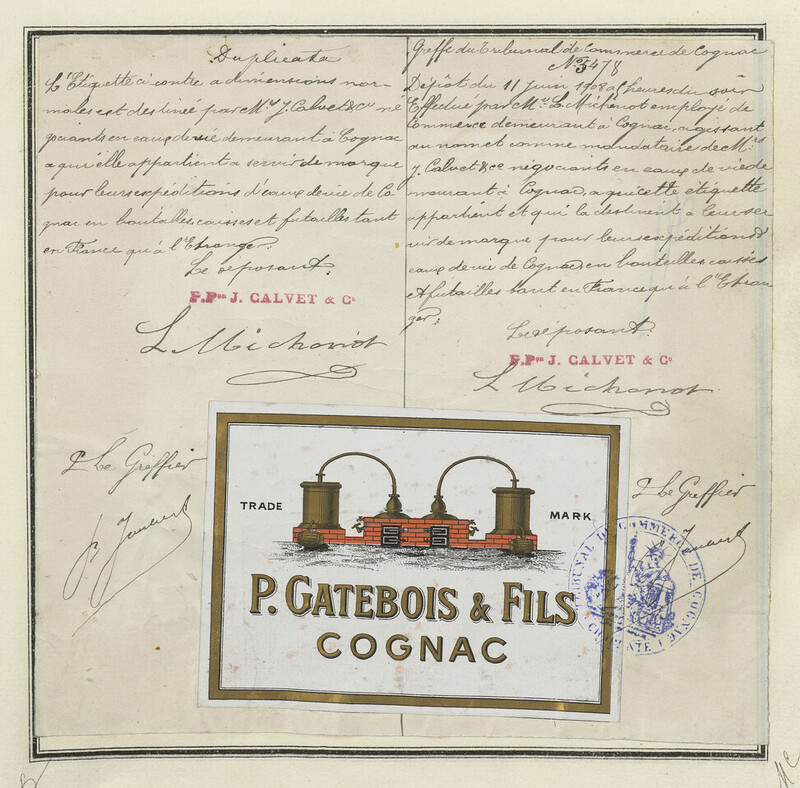 Duplicata
L'Etiquette ci contre a dimensions nor-
males est destinée par Mrs J. Calvet & Cie né
gociants en eaux de vie demeurant à Cognac
a qui elle appartient a servir de marque
pour leurs expéditions d'eaux de vie de Co
gnac en bouteilles caisses et futailles tant
en France qu'à l'Etranger.
Le déposant.
P.Pon J. CALVET & Co
L Michonot
P Le Greffier
Greffe du Tribunal de Commerce de Cognac
No 3478
Dépôt du 11 Juin 190 heures du soir
Effectué par Mr L. Michonot employé de
Commerce demeurant à Cognac, agissant
au nom et comme mandataire de Mrs
J. Calvet & Cie négociants en eaux de vie de
meurant à Cognac, a qui cette etiquette
appartient et qui la destinent a leur ser
vir de marque pour leurs expéditions d'
eaux de vie de Cognac, en bouteilles caisses
et futailles tant en France qu'à l'Etran
ger.
Le déposant.
P.Pon J. CALVET & Co
L Michonot
P Le Greffier
TRADE MARK
P. GATEBOIS & FILS
COGNAC
TRIBUNAL DE COMMERCE DE COGNAC